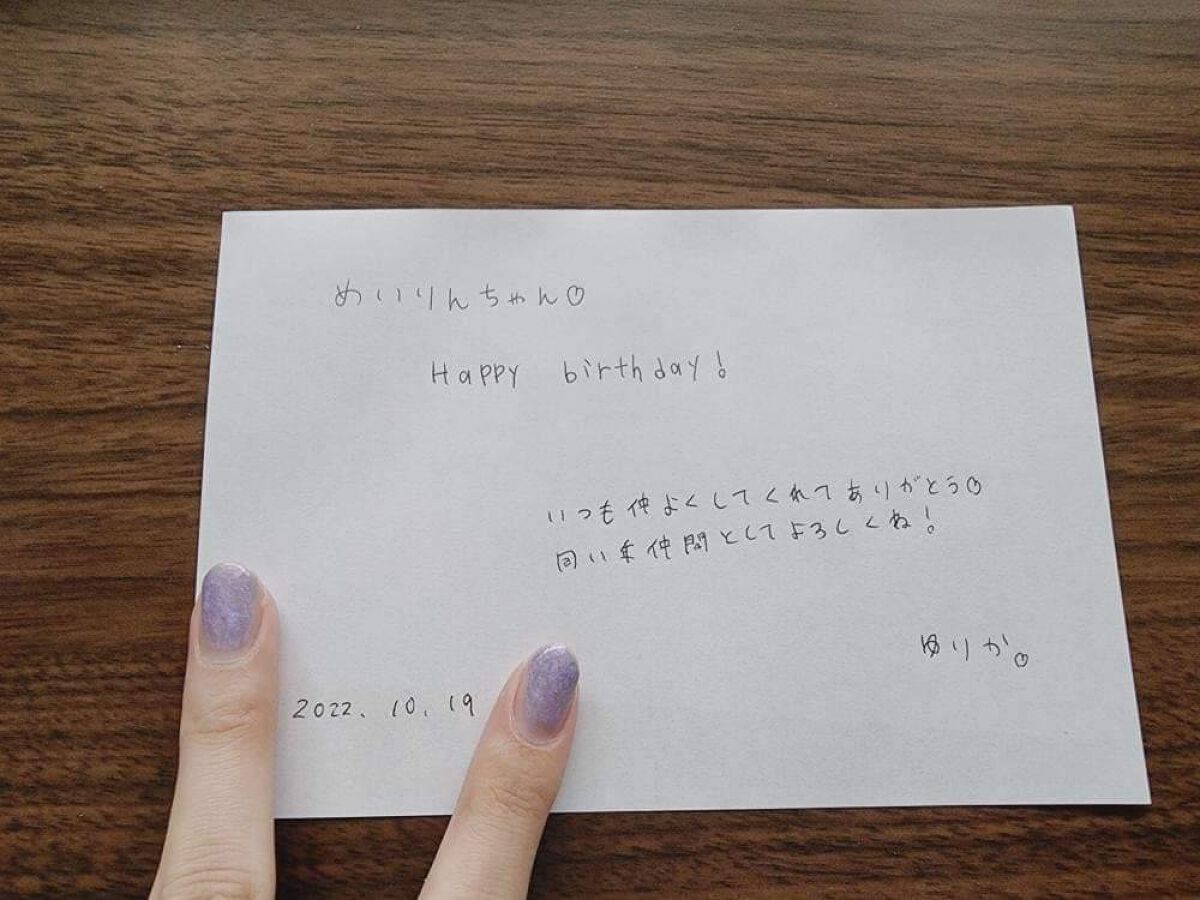 めいりんちゃん♡
Happy birthday!
いつも仲よくしてくれてありがとう♡
同い年仲間としてよろしくね!
ゆりか。
2022. 10. 19